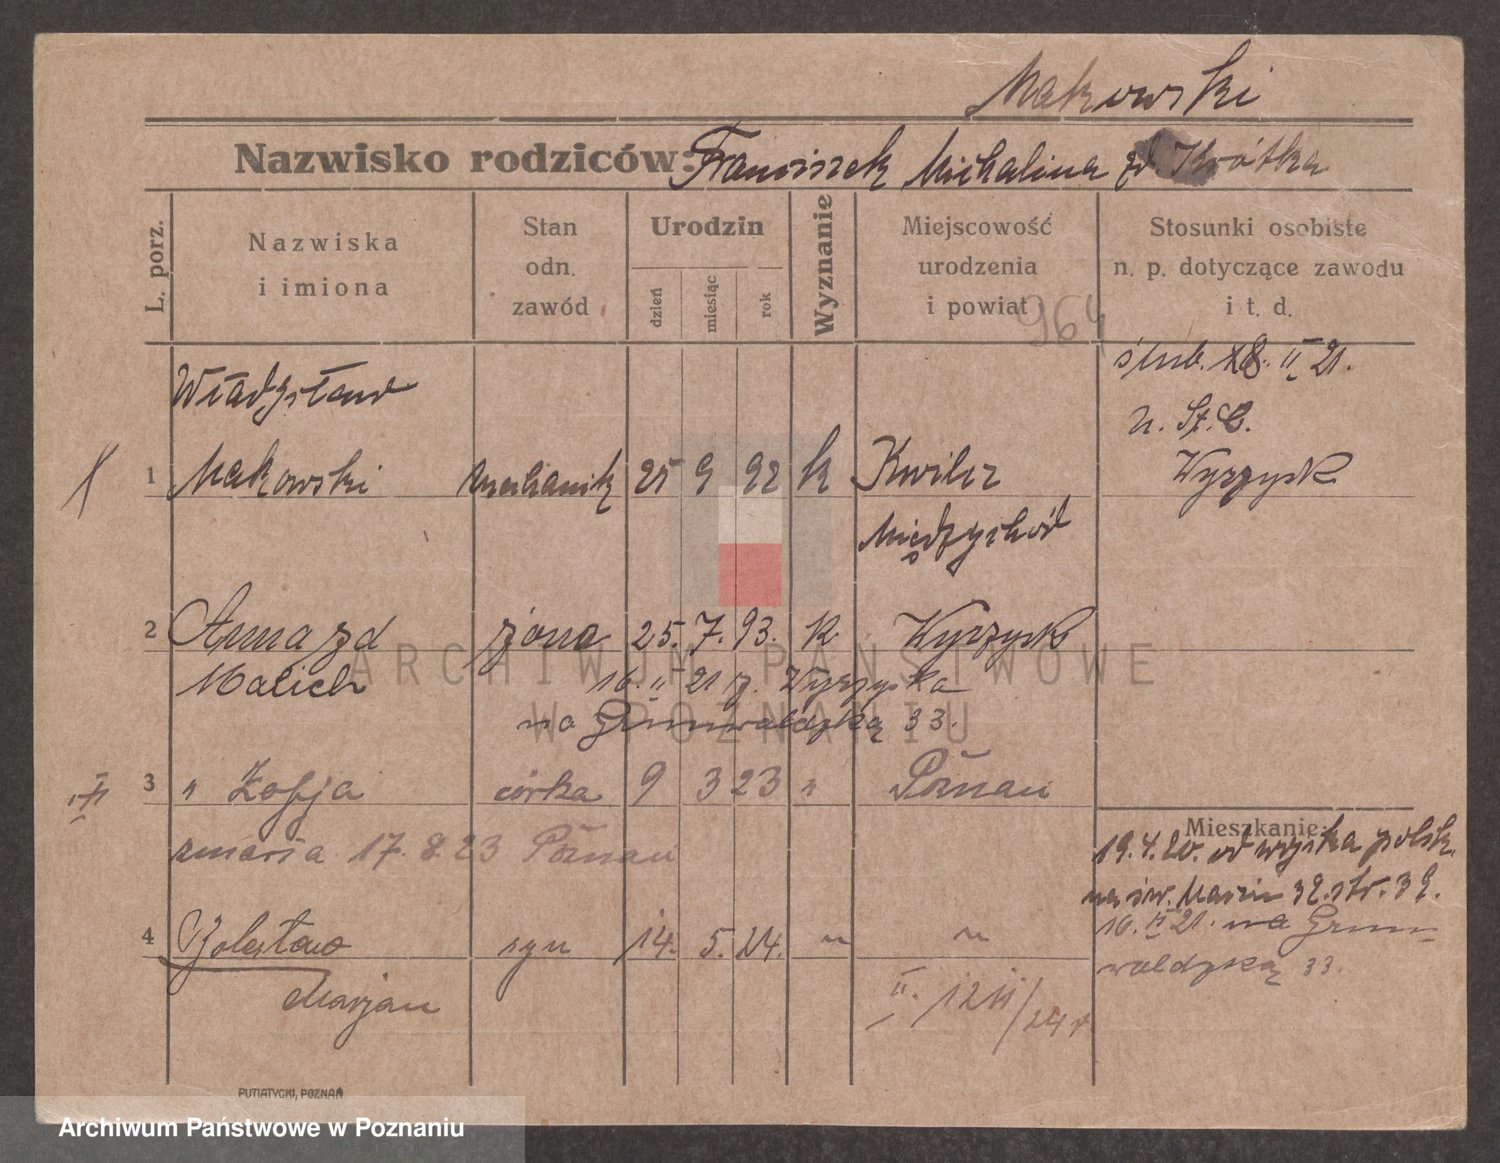 Makowski
Nazwisko rodziców: Franciszek Michalina zd. Krótka
L. porz.
Nazwiska i imiona
Stan odn. zawód
Urodzin
dzień
miesiąc
rok
Wyznanie
Miejscowość urodzenia i powiat
964
Stosunki osobiste n. p. dotyczące zawodu i t. d.
ślub. 18. II 21.
u. St. C.
Wyrzysk
Władysław
1 Makowski mechanik 25 9 92 k Kwilcz
Międzychód
2 Anna zd żona 25. 7. 93. k. Wyrzysk
Malich 16. II 21 z. Wyrzyska
na Grunwaldzką 33.
3 " Zofja córka 9 3 23 " Poznań
zmarła 17. 8. 23 Poznań
4 Bolesław syn 14. 5. 24. " "
Marjan
II.
Mieszkanie:
19.4.20. od wojska polsk.
na św. Marcin 39. str. 39.
16. II 21. na Grun-
waldzką 33.
PUTIATYCKI, POZNAŃ
ARCHIWUM PAŃSTWOWE
W POZNANIU
Archiwum Państwowe w Poznaniu